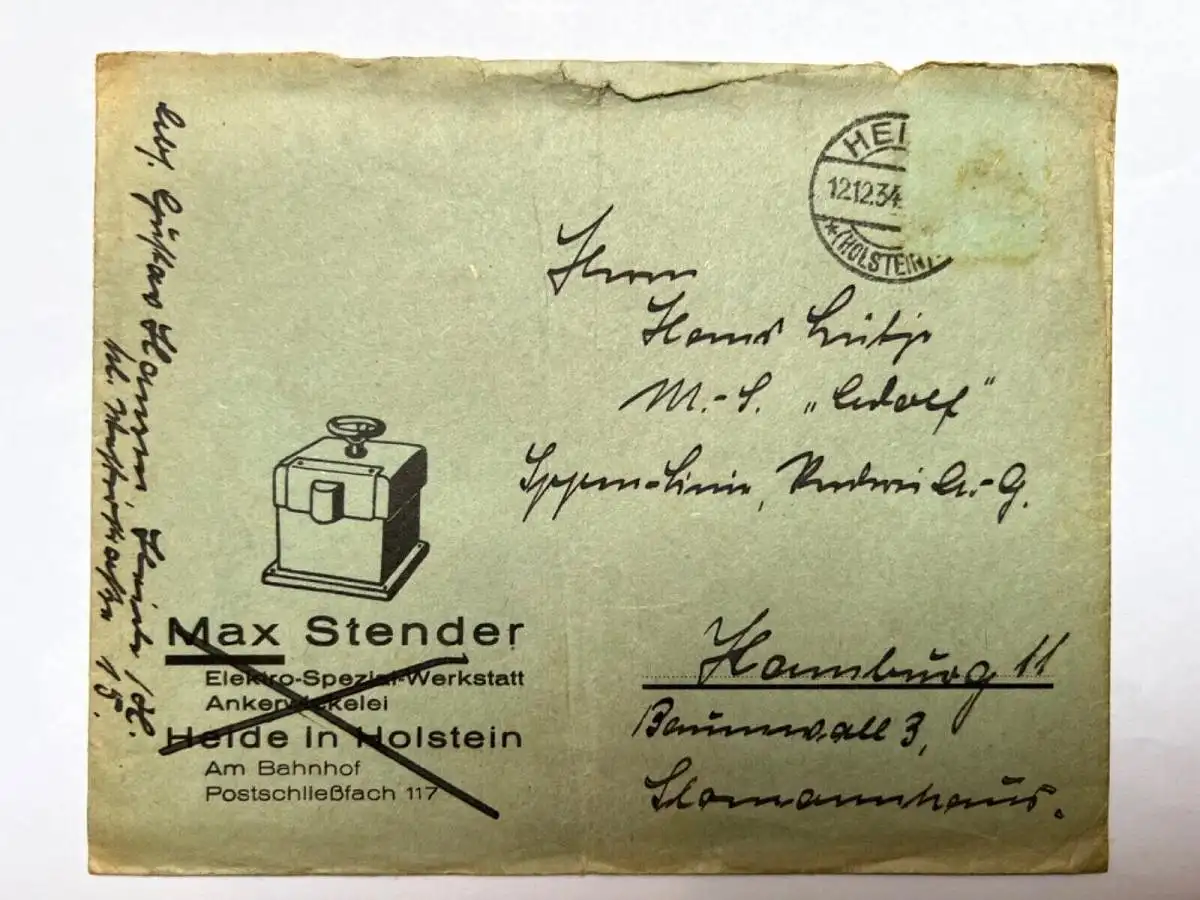 HEI
12.12.34
*(HOLSTEIN)
Herrn
Hans Lütje
M.-S. „Adolf“
Linie, A.-G.
Hamburg 11
Baumwall 3,
Slomannhaus.
Max Stender
Elektro-Spezial-Werkstatt
Ankerwickelei
Heide in Holstein
Am Bahnhof
Postschließfach 117
Abs. Gustav Hansen Heide i/H.
15.